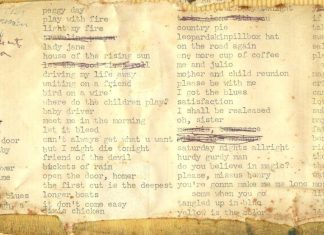 peggy day
play with fire
light my fire
lady jane
house of the rising sun
driving my life away
waiting on a friend
bird on a wire
where do the children play?
baby driver
meet me in the morning
let it bleed
can't always get what u want
thot I might die tonight
friend of the devil
buckets of rain
open the door, homer
the first cut is the deepest
longer boats
it don't come easy
chicken
door
blues
country pie
leopardskinpillbox hat
on the road again
one more cup of coffee
me and julio
mother and child reunion
please be with me
I got the blues
satisfaction
I shall be realeased
oh, sister
saturday nights allright
hurdy gurdy man
do you believe in magic?
please, missus henry
you're gonna make me
some when you go
tangled up in blue
yellow is the color